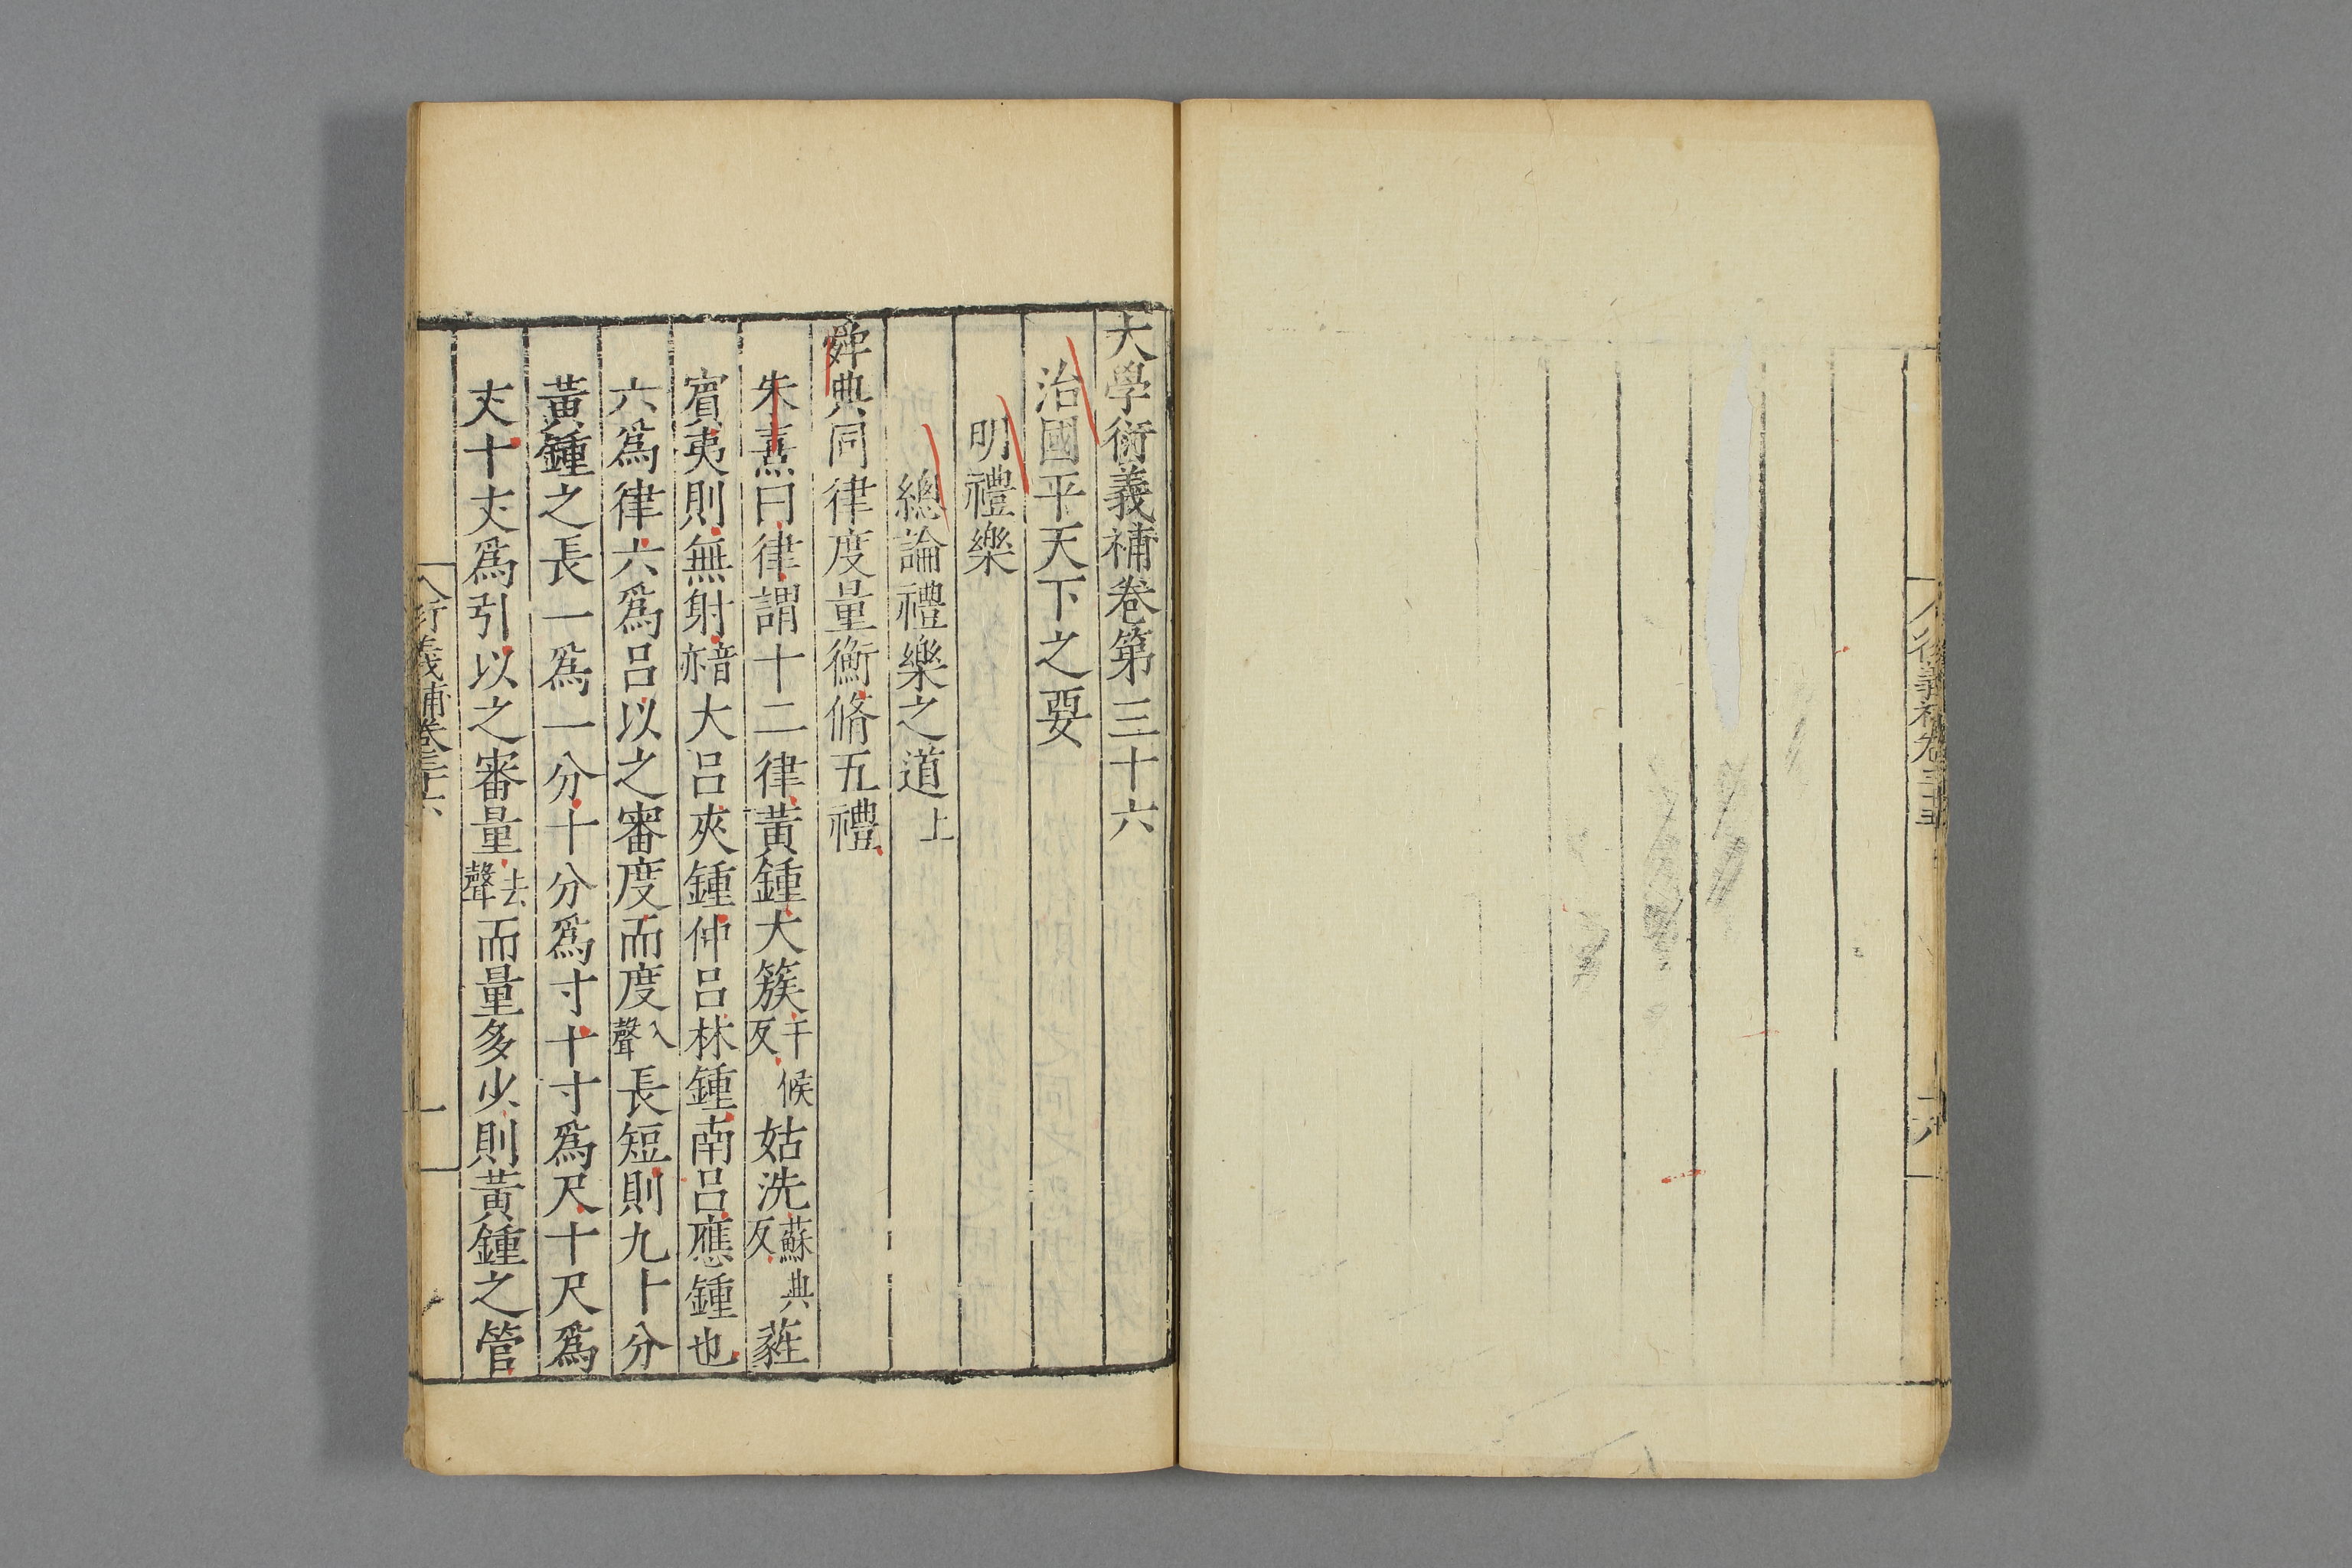 大學衍義補卷第三十六
治國平天下之要
明禮樂
總論禮樂之道上
舜典同律度量衡脩五禮
朱熹曰律謂十二律黃鍾大簇千候反姑洗蘇典反蕤
賓夷則無射音亦大呂夾鍾仲呂林鍾南呂應鍾也
六為律六為呂以之審度而度入聲長短則九十分
黃鍾之長一為一分十分為寸十寸為尺十尺為
丈十丈為引以之審量去聲而量多少則黃鍾之管
衍義補卷三十六
一